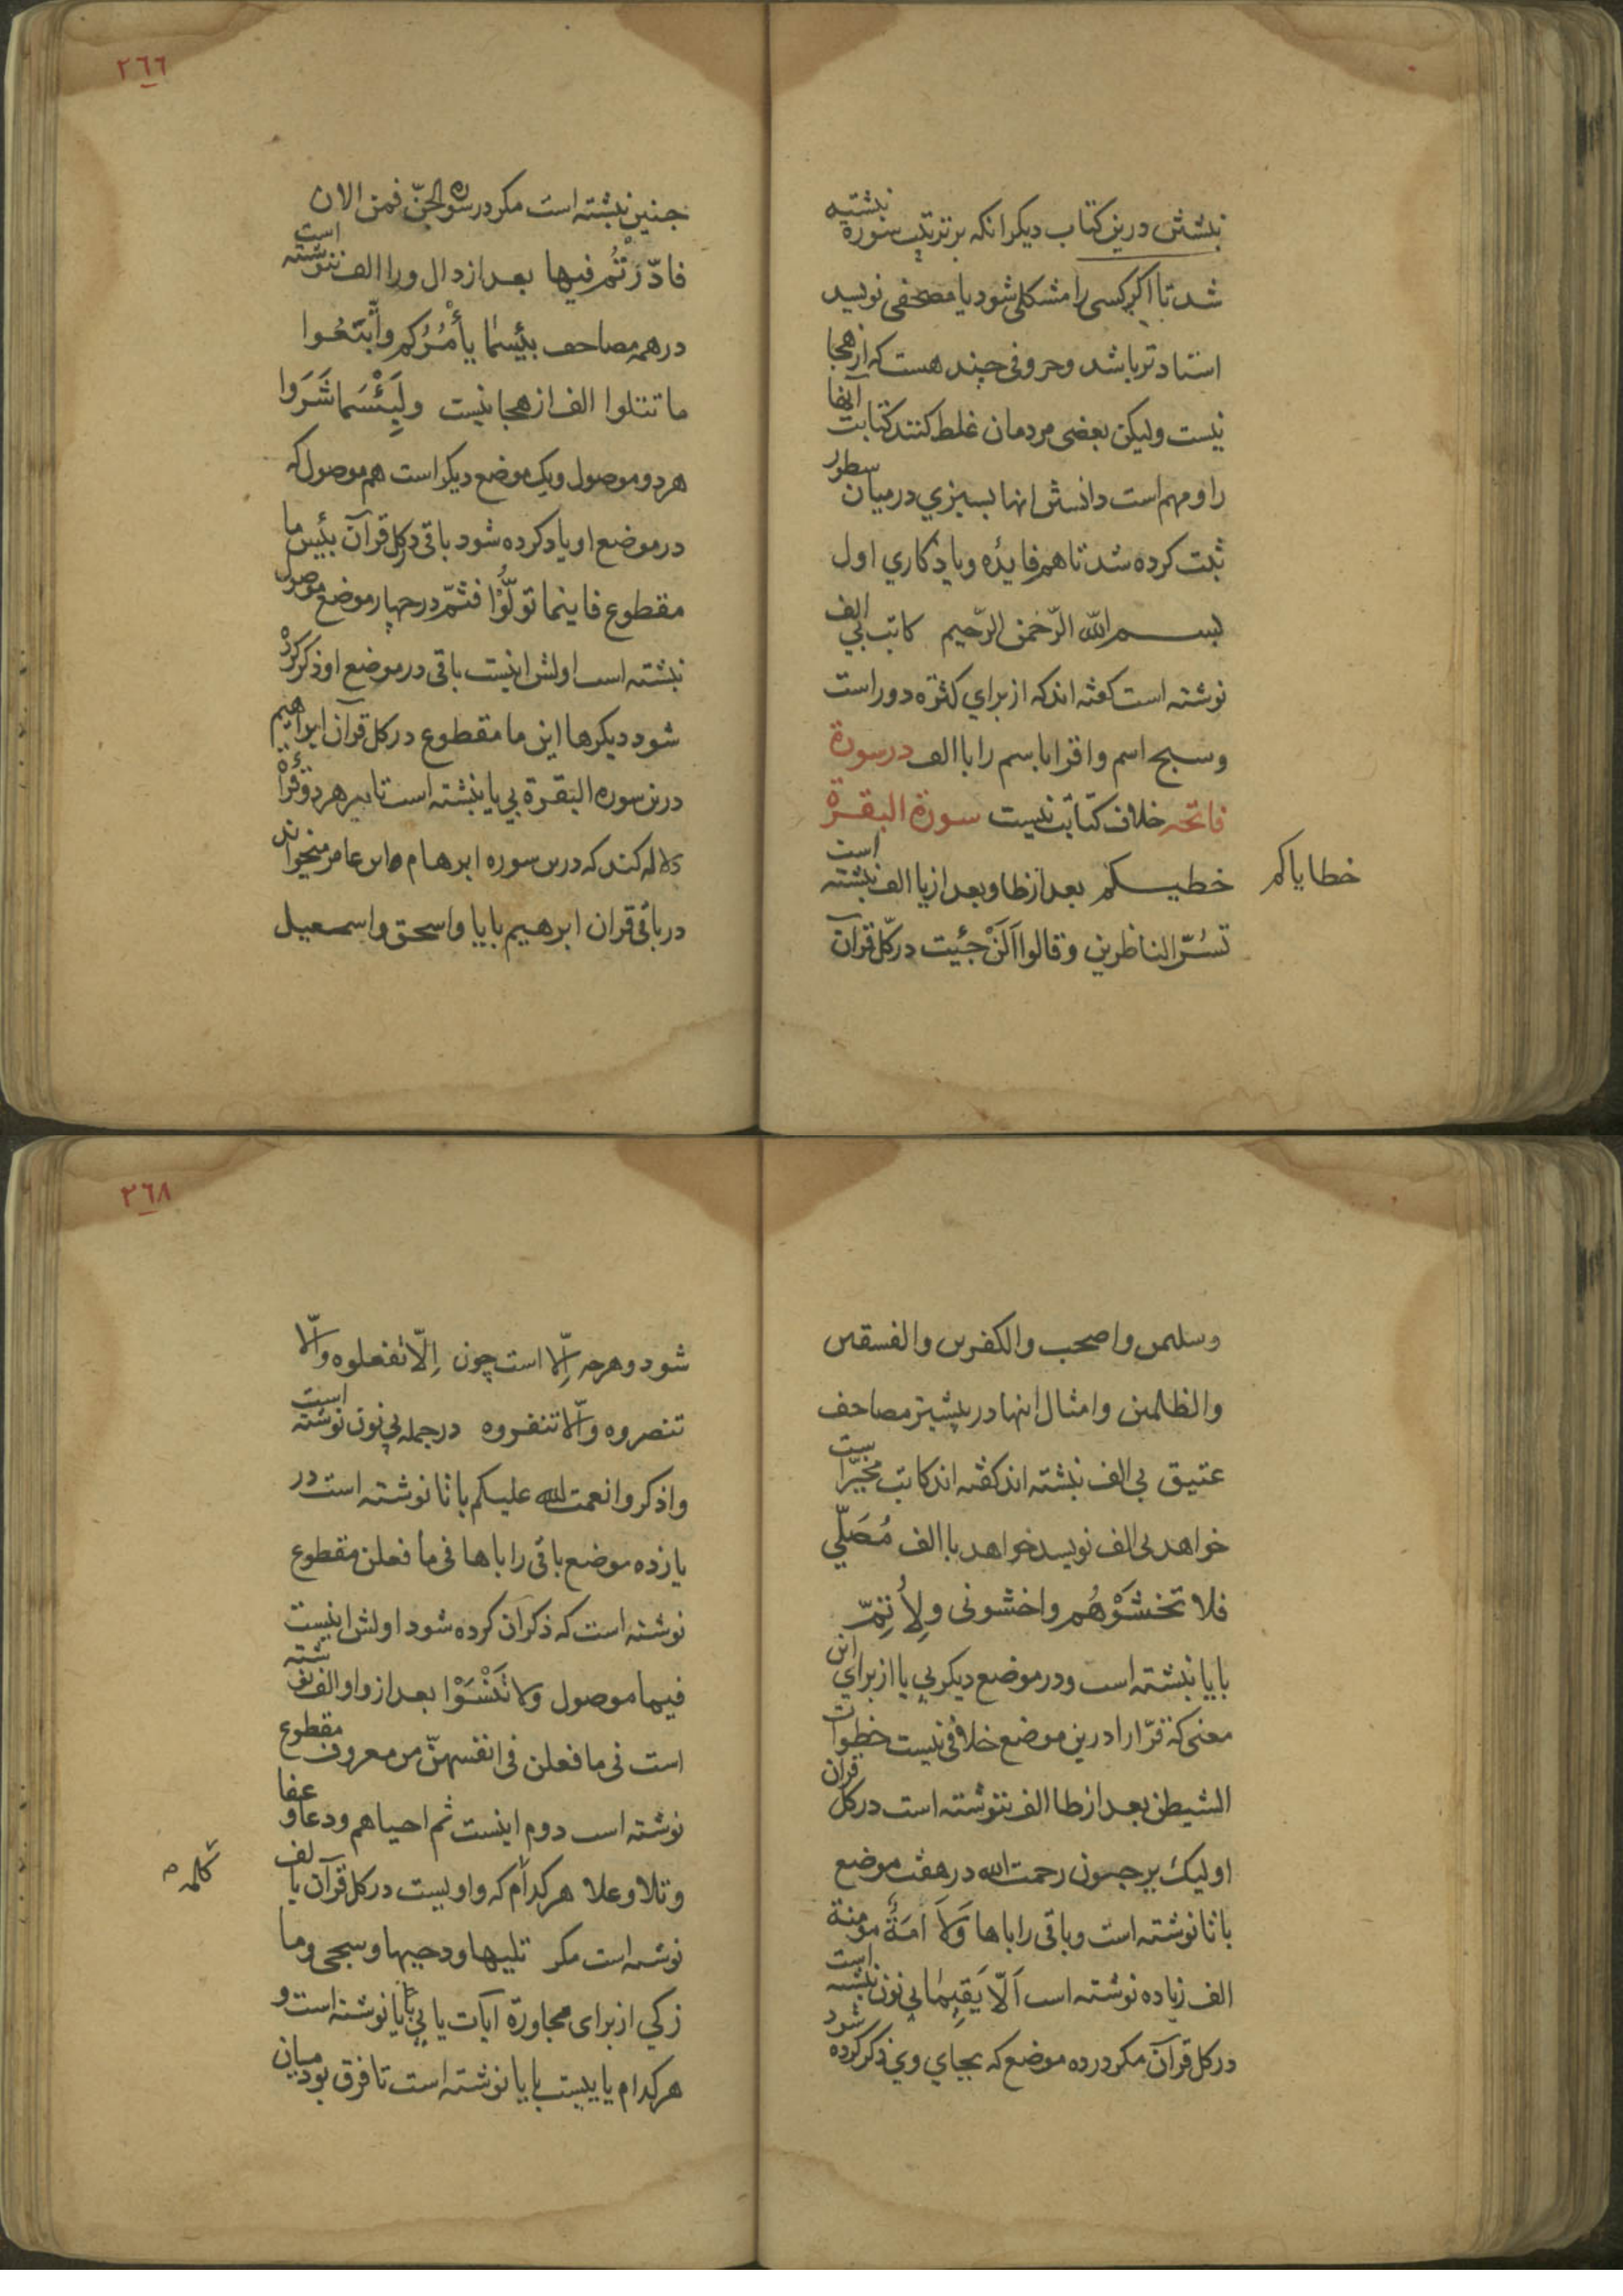 نبشتن درین کتاب دیکر انکه بر ترتیب سورة نبشتیه
شد تا اکر کسی را مشکلی شود یا مصحفی نویسد
استاد تر باشد وحروفی چند هست که از هجا
نیست ولیکن بعضی مردمان غلط کنند کتابت آنها
را ومهم است دانستن انها بسبزي درمیان سطور
ثبت کرده شد تا هم فایده ویادکاري اول
بســـم الله الرّحمن الرّحیم کاتب بی الف
نوشته است کفته اند که از برای کثرة دور است
وسبح اسم واقرا باسم را با الف درسورة
فاتحه خلاف کتابت نیست سورة البقــرة
خطیــکم بعد از طا وبعد از یا الف نبشته است
خطایاکم
تسُرّ الناظرین وقالوا آلَنْ جئیت در کلّ قرآن
٢٦٦
جنین نبشته است مکر در سورة الجنّ فمن الان
فادّرَْتُم فیها بعد از دال ورا الف ننوشته است
درهمه مصاحف بئیسمٰا یأْمُرُکم واتَّبَعُوا
ما تتلوا الف از هجا نیست ولَبِئْسَما شَرَوا
هر دو موصول ویک موضع دیکر است هم موصول که
در موضع او یاد کرده شود باقی در کل قرآن بئیس ما
مقطوع فاینما تولُّوْا فثمّ درچهار موضع موصول
نبشته است اولش اینست باقی در موضع او ذکر کرد
شود دیکرها این ما مقطوع در کل قرآن ابراهیم
درین سوره البقــرة بی یا نبشته است تا بر هر دو قراءة
دلاله کند که درین سوره ابرهام ابن عامر میخواند
در باقی قران ابرهیم بایا واسحق واسمــعیل
وسلیمن واصحب والکفرین والفسقین
والظلمین وامثال اینها در بیشتر مصاحف
عتیق بی الف نبشته اند کفته اند کاتب مخیّرا ست
خواهد بی الف نویسد خواهد با الف مُصَلّي
فلا تخشَوْهُم واخشونی ولِأُتِمّ
بایا نبشته است ودر موضع دیکر بی یا از برای این
معنی که قرّا را درین موضع خلافی نیست خطوات
الشیطن بعد از طا الف ننوشته است در کل قران
اولیک یرجــون رحمت الله در هفت موضع
باتا نوشته است وباقی را باها وَلَاَ اَمَةٌ مومنة
الف زیاده نوشته است اَلّا یَقیِمٰا بی نون نبشته است
در کل قرآن مکر در ده موضع که بجاي وي ذکر کرده شود
٢٦٨
شود وهرجه اِلّا است چون اِلّا تفعلوه والّا
تنصروه والّا تنفــروه درجمله بی نون نوشته است
واذکروا نعمت الله علیکم باتا نوشته است در
یازده موضع باقی را باها فی ما فعلن مقطوع
نوشته است که ذکر ان کرده شود اولش اینست
فیما موصول ولا تَنْسَوْا بعد از واو الف نوشته
است فی ما فعلن فی انفسهنّ من معروف مقطوع
نوشته است دوم اینست ثم احیاهم ودعا وعفا
وتلا وعلا هر کدام که واویست در کل قرآن با لف
کلمه
نوشته است مکر تلیها ودحیها وسجی وما
زکي از برای مجاورة آیات یایي بایا نوشته است و
هر کدام یاییست بایا نوشته است تا فرق بود میان